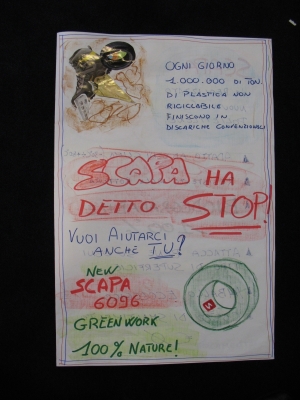 OGNI GIORNO
1.000.000 DI TON.
DI PLASTICA NON
RICICLABILE
FINISCONO IN
DISCARICHE CONVENZIONALI
SCAPA HA
DETTO STOP!
VUOI AIUTARCI
ANCHE TU?
NEW
SCAPA
6096
GREENWORK
100% NATURE!